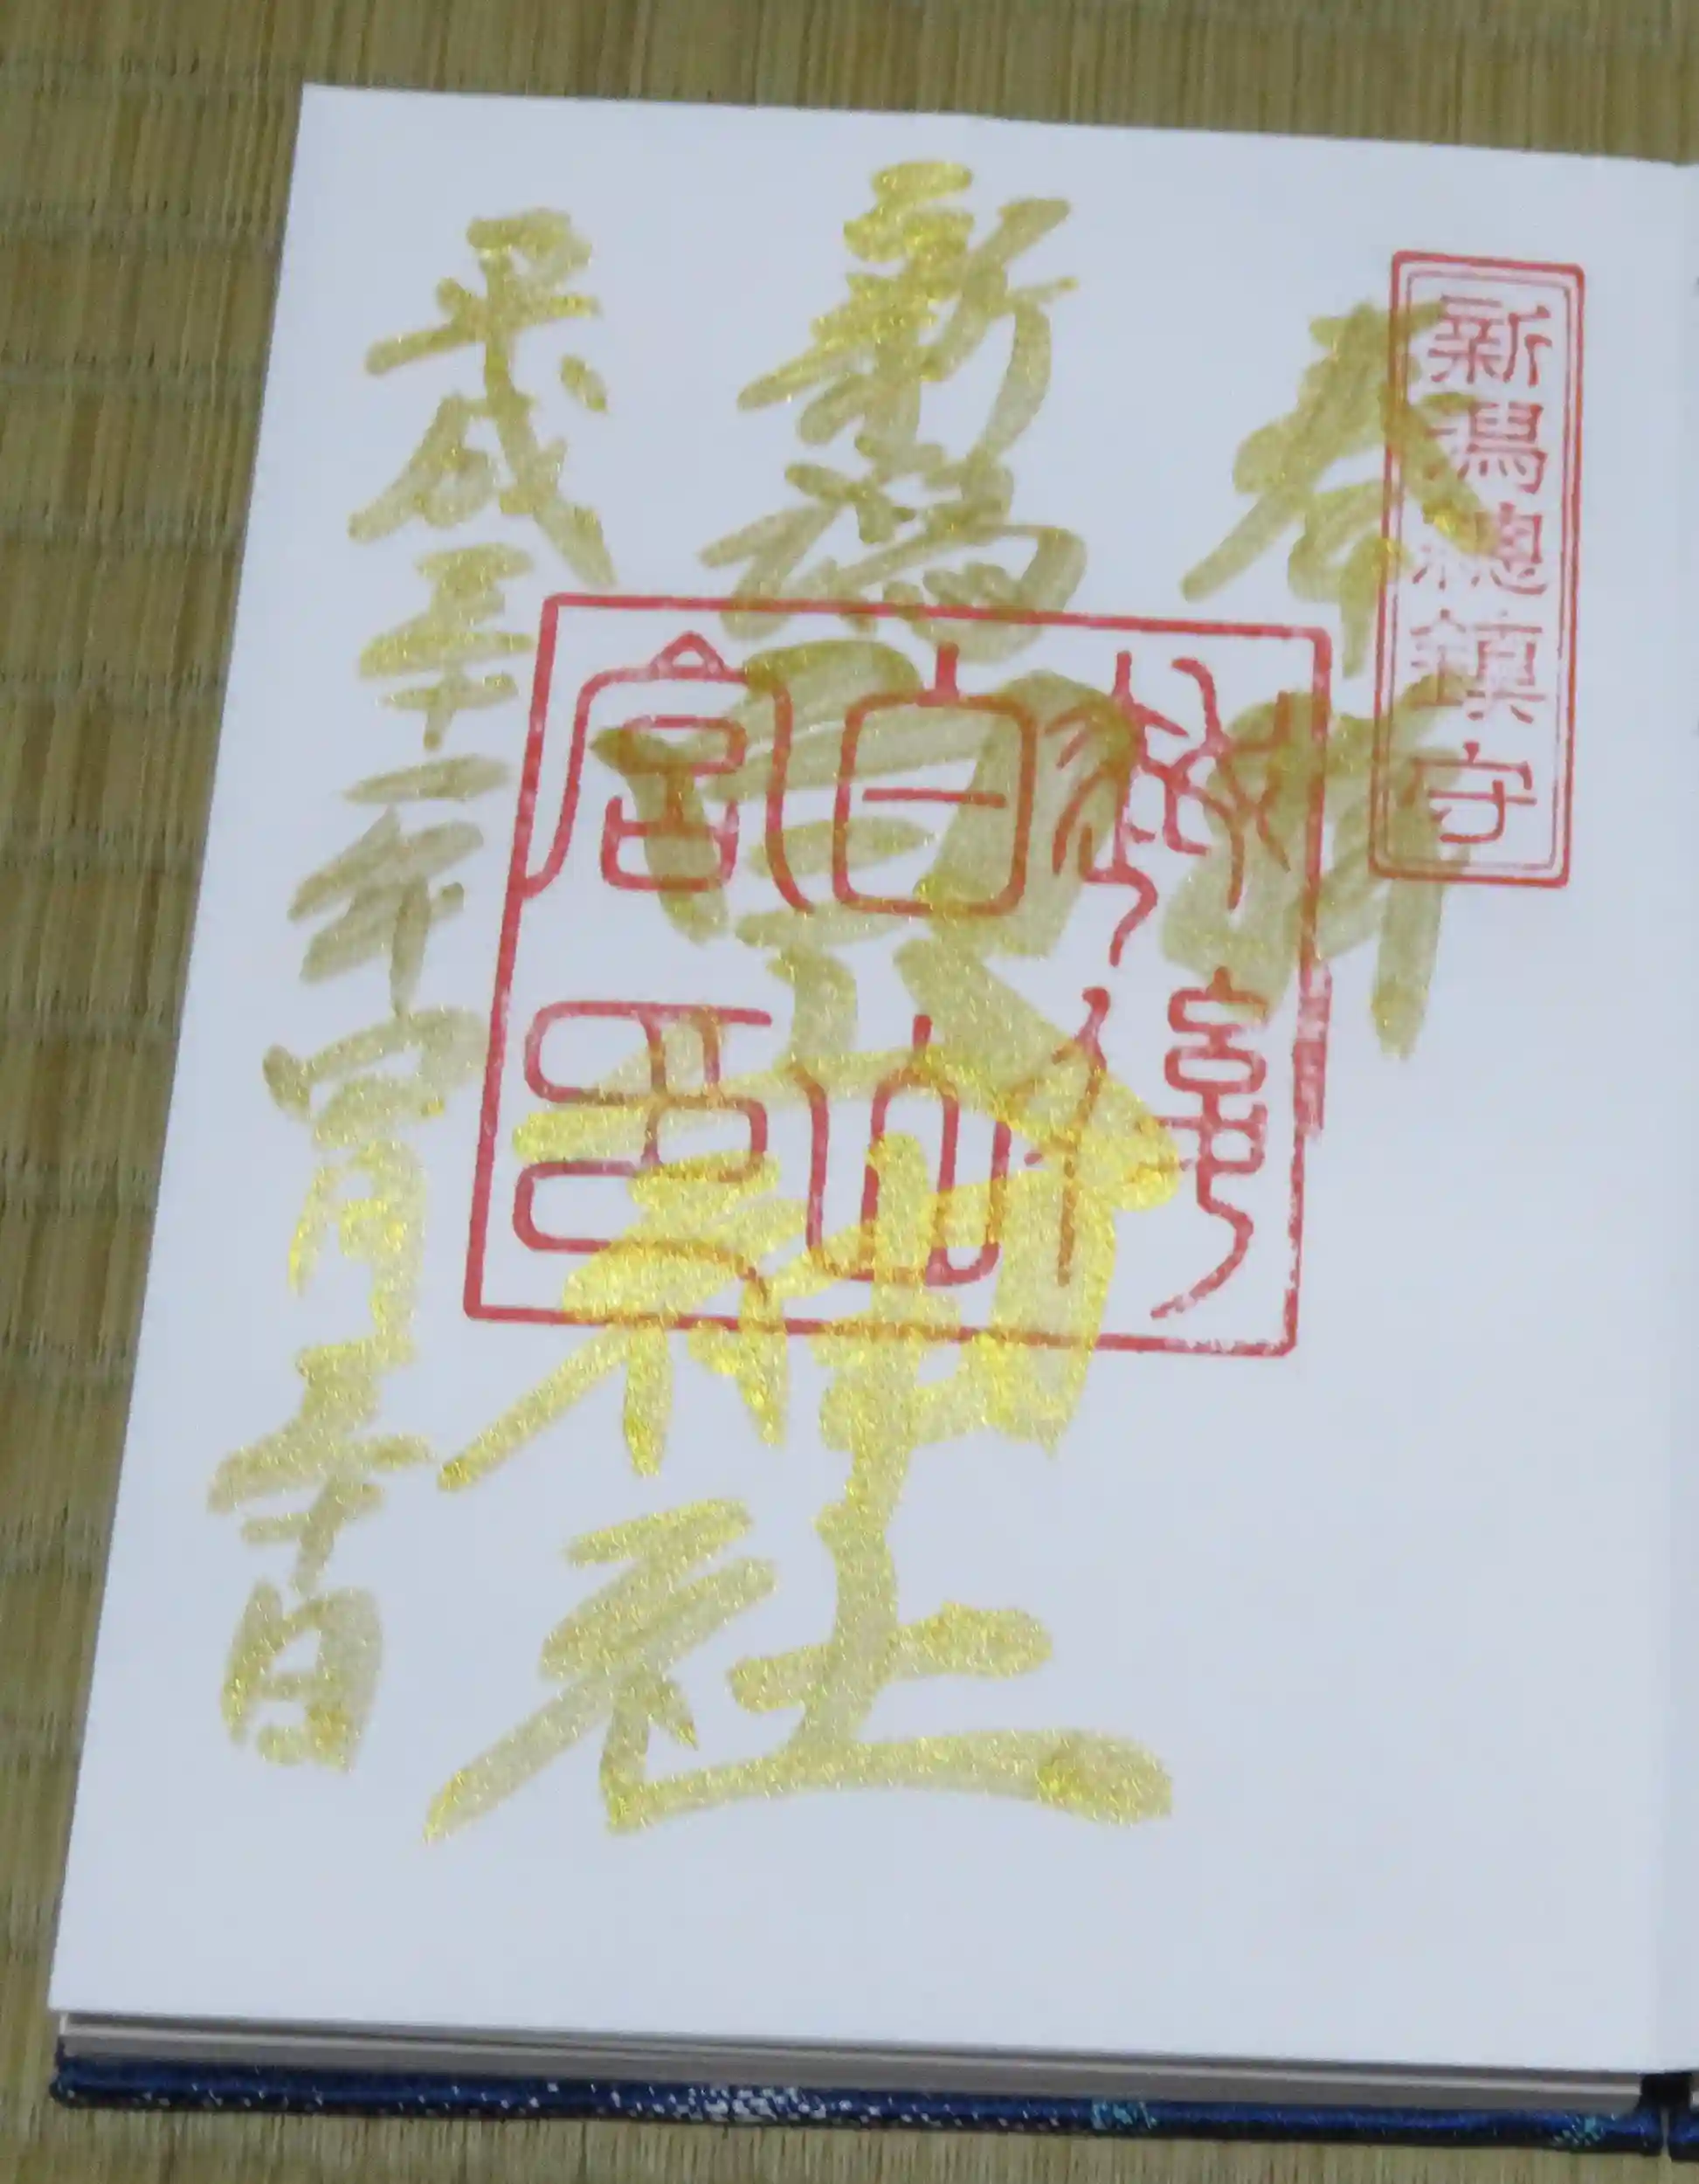 奉拝
新潟總鎮守
新潟白山神社
越後
白山
宮印
平成三十一年四月三十日